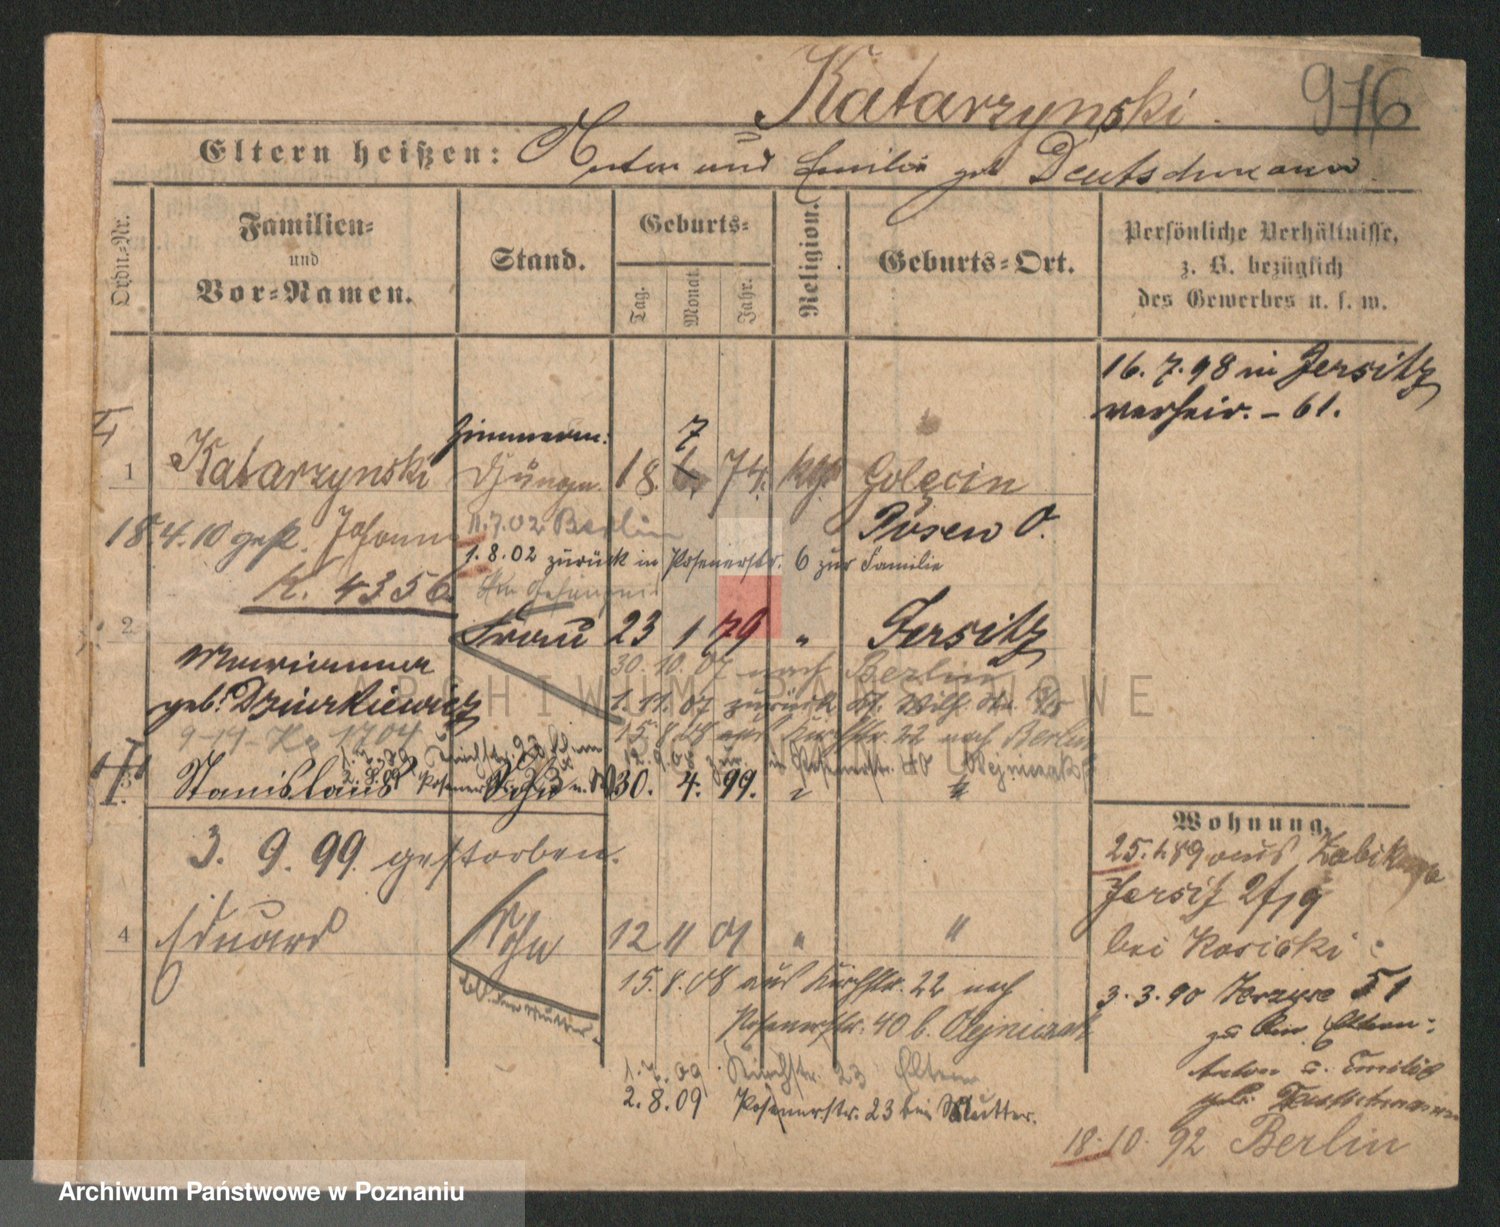 Katarzynski. 976
Eltern heißen: Anton und Emilie geb Deutschmann.
Ordn.-Nr.
Familien-
und
Vor-Namen.
Stand.
Geburts-
Tag.
Monat
Jahr.
Religion.
Geburts-Ort.
Persönliche Verhältnisse,
z. B. bezüglich
des Gewerbes u. s. w.
16. 7. 98 in Jersitz
verheir. - 61.
Zimmerm.
7
1 Katarzynski 18. 74. kath Golecin
18.4.10 gest. Johann 11.7.02 Berlin Posen O.
1.8.02 zurück in Posenerstr. 6 zur Familie
K. 4356
2 Frau 23 1 79 " Jersitz
Marianna 30.10.07 nach Berlin
geb. Dziurkiewicz 1.11.07 zurück
15.8.08 aus Kirchstr. 22 nach Berlin
12.9.08 zur. in Posenerstr. 40
3 Stanislaus Sohn 30. 4. 99. " "
3. 9. 99 gestorben.
4 Eduard Sohn 12 11 01 " "
bei der Mutter
15.8.08 aus Kirchstr. 22 nach
Posenerstr. 40 b. Olejniczak
1.7.09 Kirchstr. 23 Eltern
2.8.09 Posenerstr. 23 bei Mutter.
Wohnung.
25.1.89 aus
Jersitz
bei Kosicki
3.3.90 Jerzyce 51
zu den Eltern:
Anton u. Emilie
geb. Deutschmann
18.10. 92 Berlin
ARCHIWUM PAŃSTWOWE
Archiwum Państwowe w Poznaniu